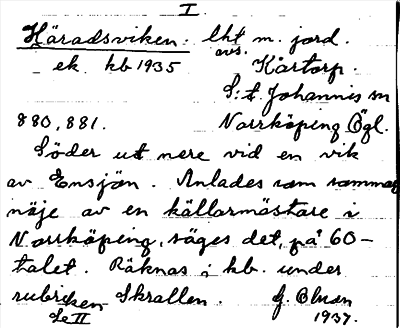 I.
Häradsviken. lht m. jord.
avs.
ek. kb 1935 Kårtorp.
S:t Johannis sn
880, 881. Norrköping Ögl.
Söder ut nere vid en vik
av Ensjön. Anlades som sommar
nöje av en källarmästare i
Norrköping, säges det, på 60-
talet. Räknas i kb. under
rubriken Skrallen. G.
Se II 1937.